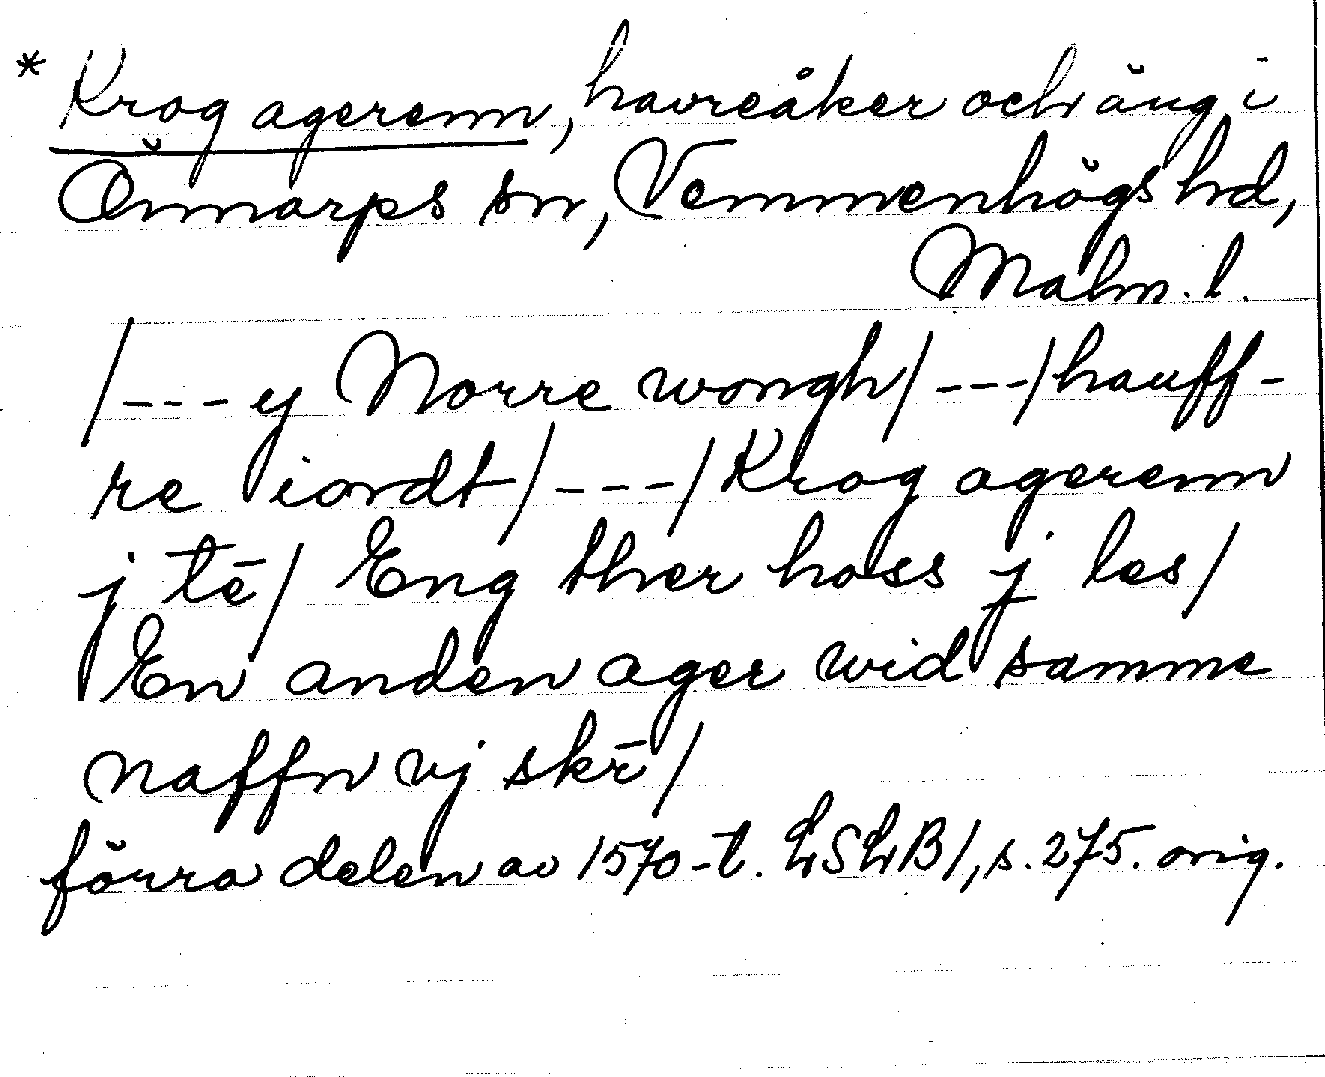 * Krog agerenn, havreåker och äng i
Önnarps sn, Vemmenhögs hd,
Malm. l.
/---y Norre wongh/---/hauff-
re iordt/---/Krog agerenn
j tē/ Eng ther hoss j les/
En anden ager wid samme
naffn vj skē/
förra delen av 1570-t. LSLB1, s. 275. orig.